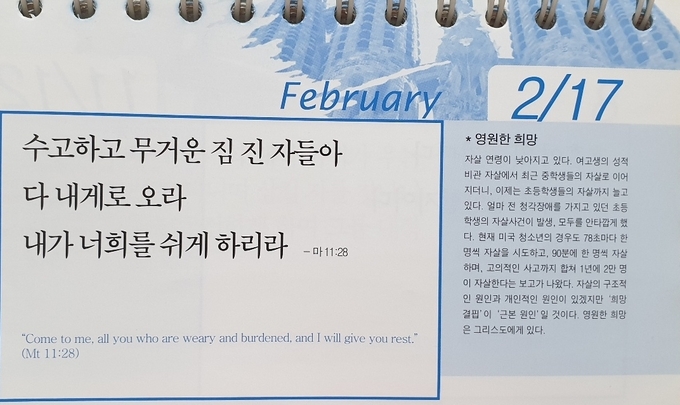 February
2/17
수고하고 무거운 짐 진 자들아
다 내게로 오라
내가 너희를 쉬게 하리라 – 마 11:28
“Come to me, all you who are weary and burdened, and I will give you rest.”
(Mt 11:28)
* 영원한 희망
자살 연령이 낮아지고 있다. 여고생의 성적
비관 자살에서 최근 중학생들의 자살로 이어
지더니, 이제는 초등학생들의 자살까지 늘고
있다. 얼마 전 청각장애를 가지고 있던 초등
학생의 자살사건이 발생, 모두를 안타깝게 했
다. 현재 미국 청소년의 경우도 78초마다 한
명씩 자살을 시도하고, 90분에 한 명씩 자살
하며, 고의적인 사고까지 합쳐 1년에 2만 명
이 자살한다는 보고가 나왔다. 자살의 구조적
인 원인과 개인적인 원인이 있겠지만 ‘희망
결핍’이 ‘근본 원인’일 것이다. 영원한 희망
은 그리스도에게 있다.